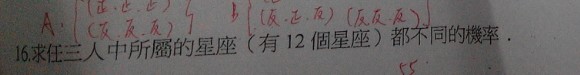 (正.正.正)
A. (反.反.反) B (反.正.反) (反.反.反)
16.求任三人中所屬的星座（有 12 個星座）都不同的機率．
55